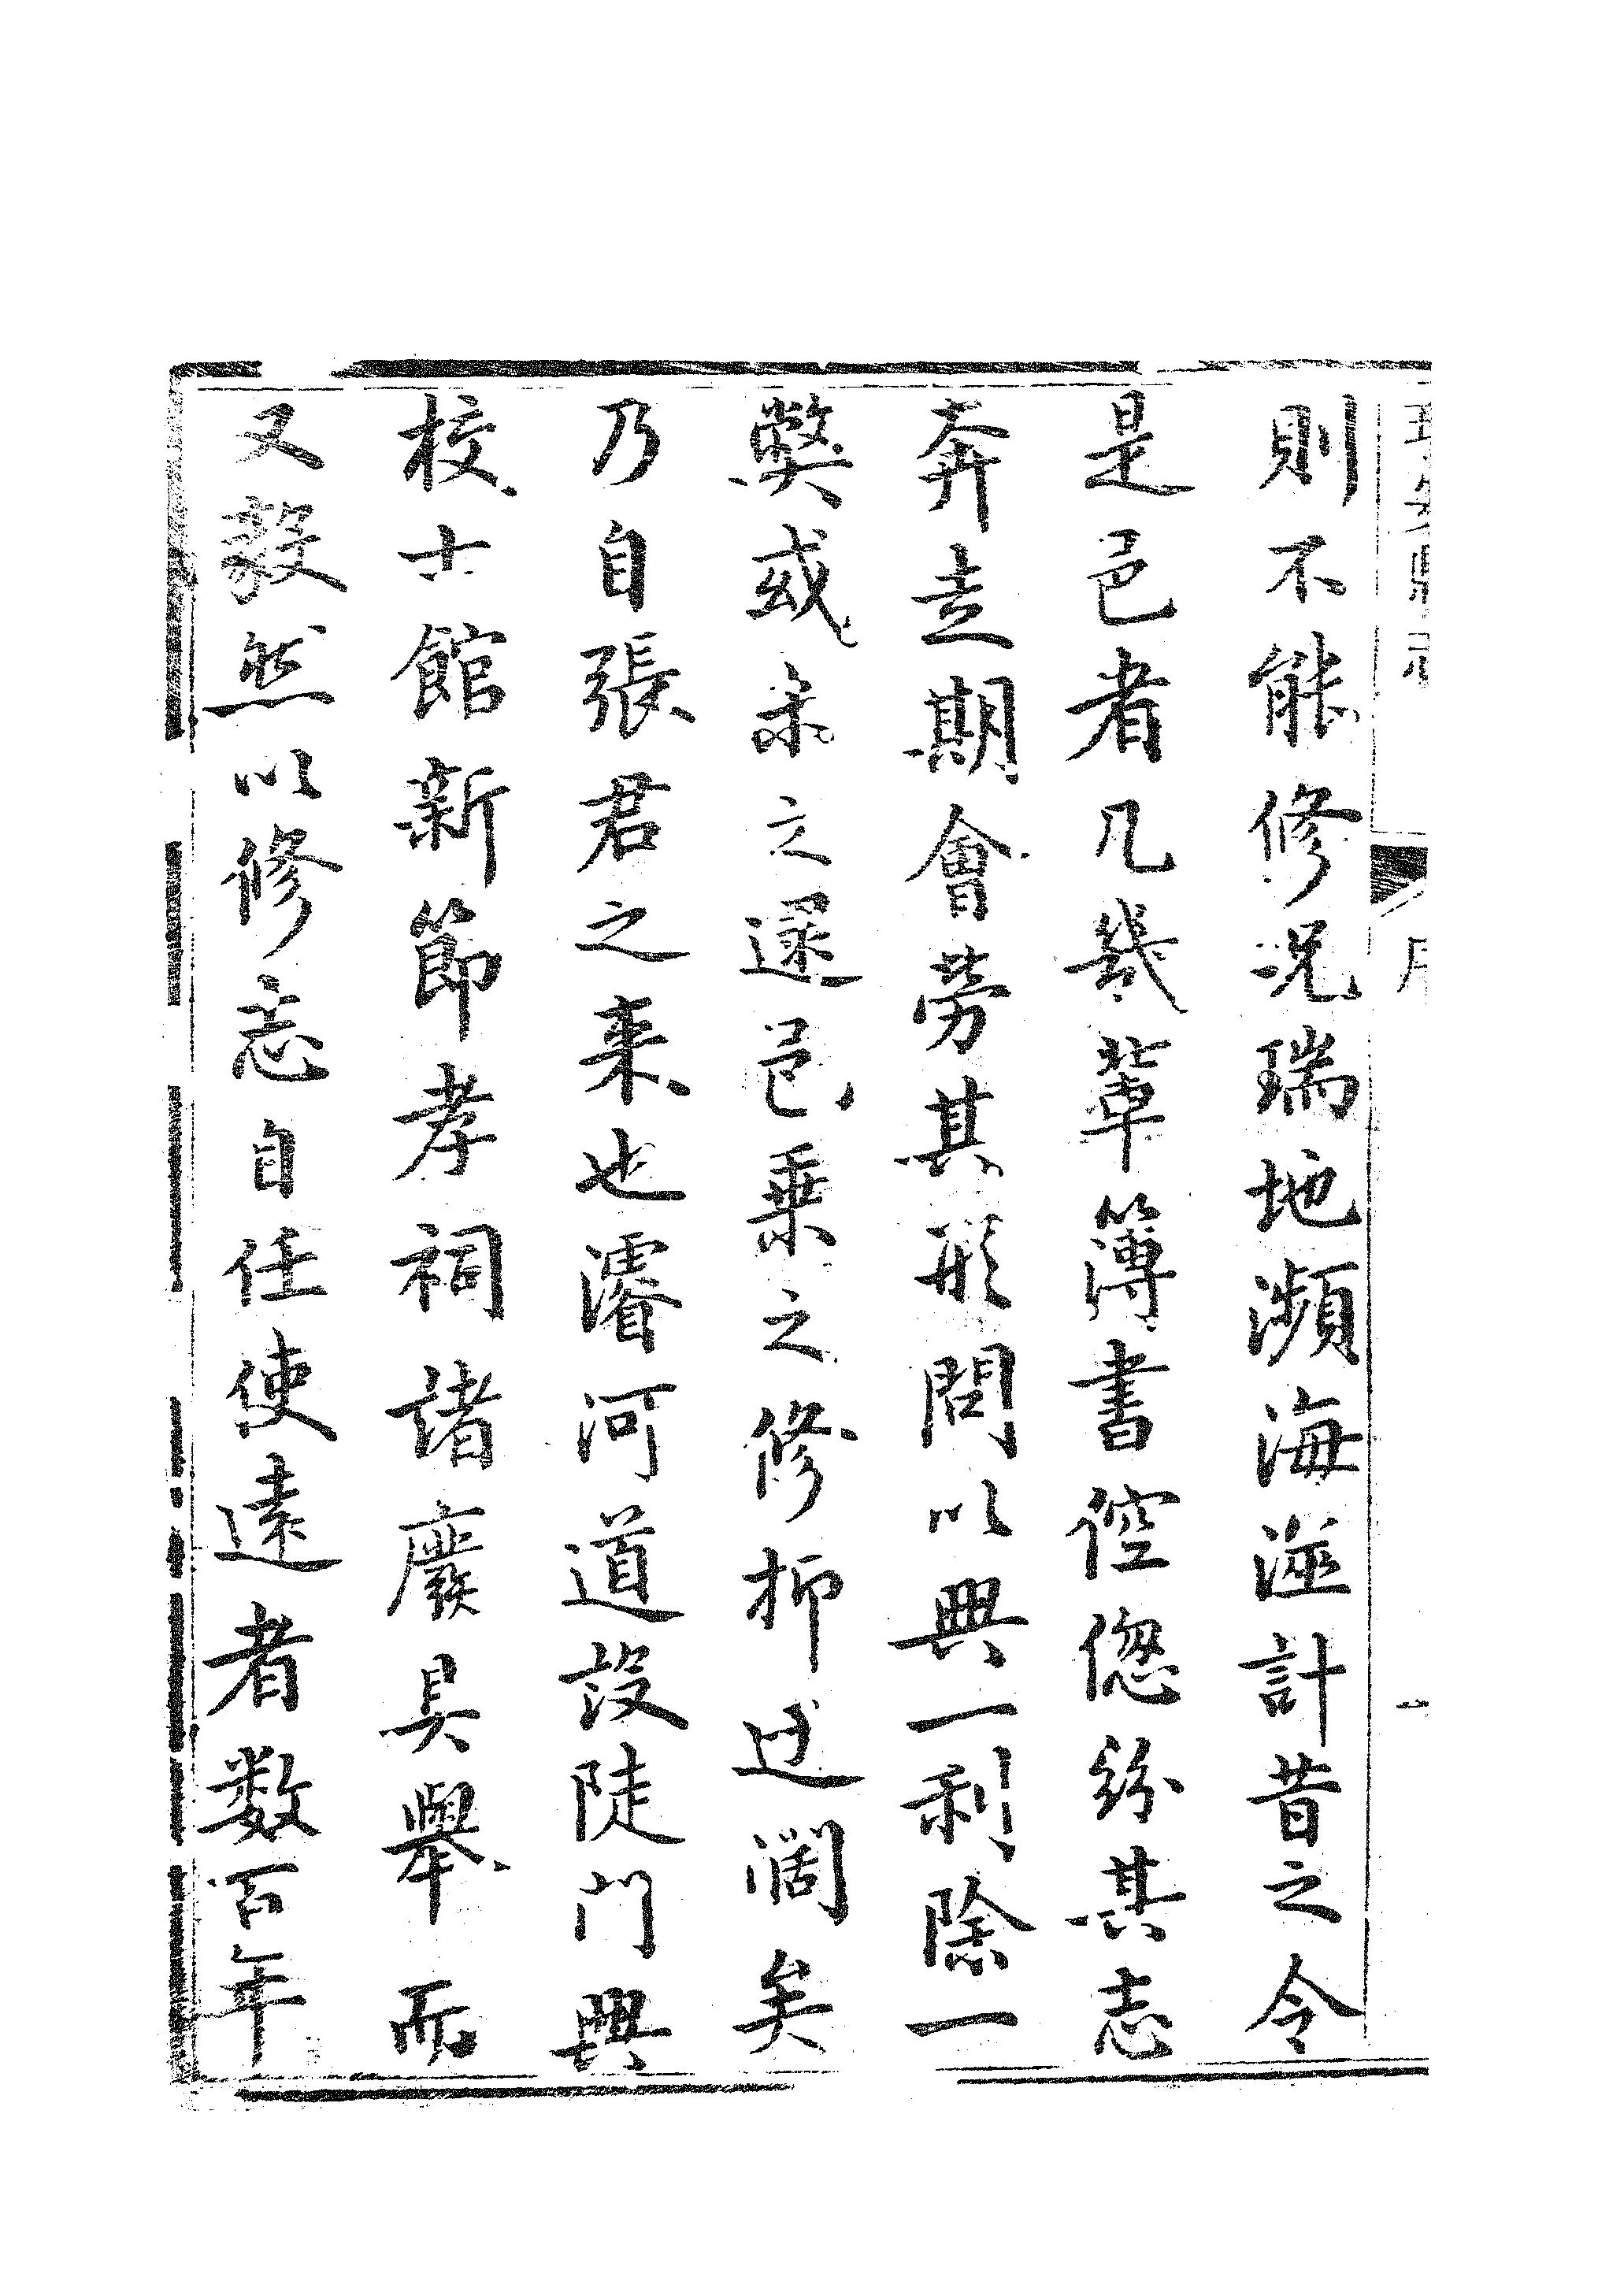 則不能修况瑞地瀕海遝計昔之令
是邑者凡幾輩簿書倥偬紛其志
奔走期會勞其形間以興一利除一
弊或未之遑邑乗之修抑迂濶矣
乃自張君之来也濬河道設陡門興
校士館新節孝祠諸廢具舉而
又毅然以修志自任使逺者数百年